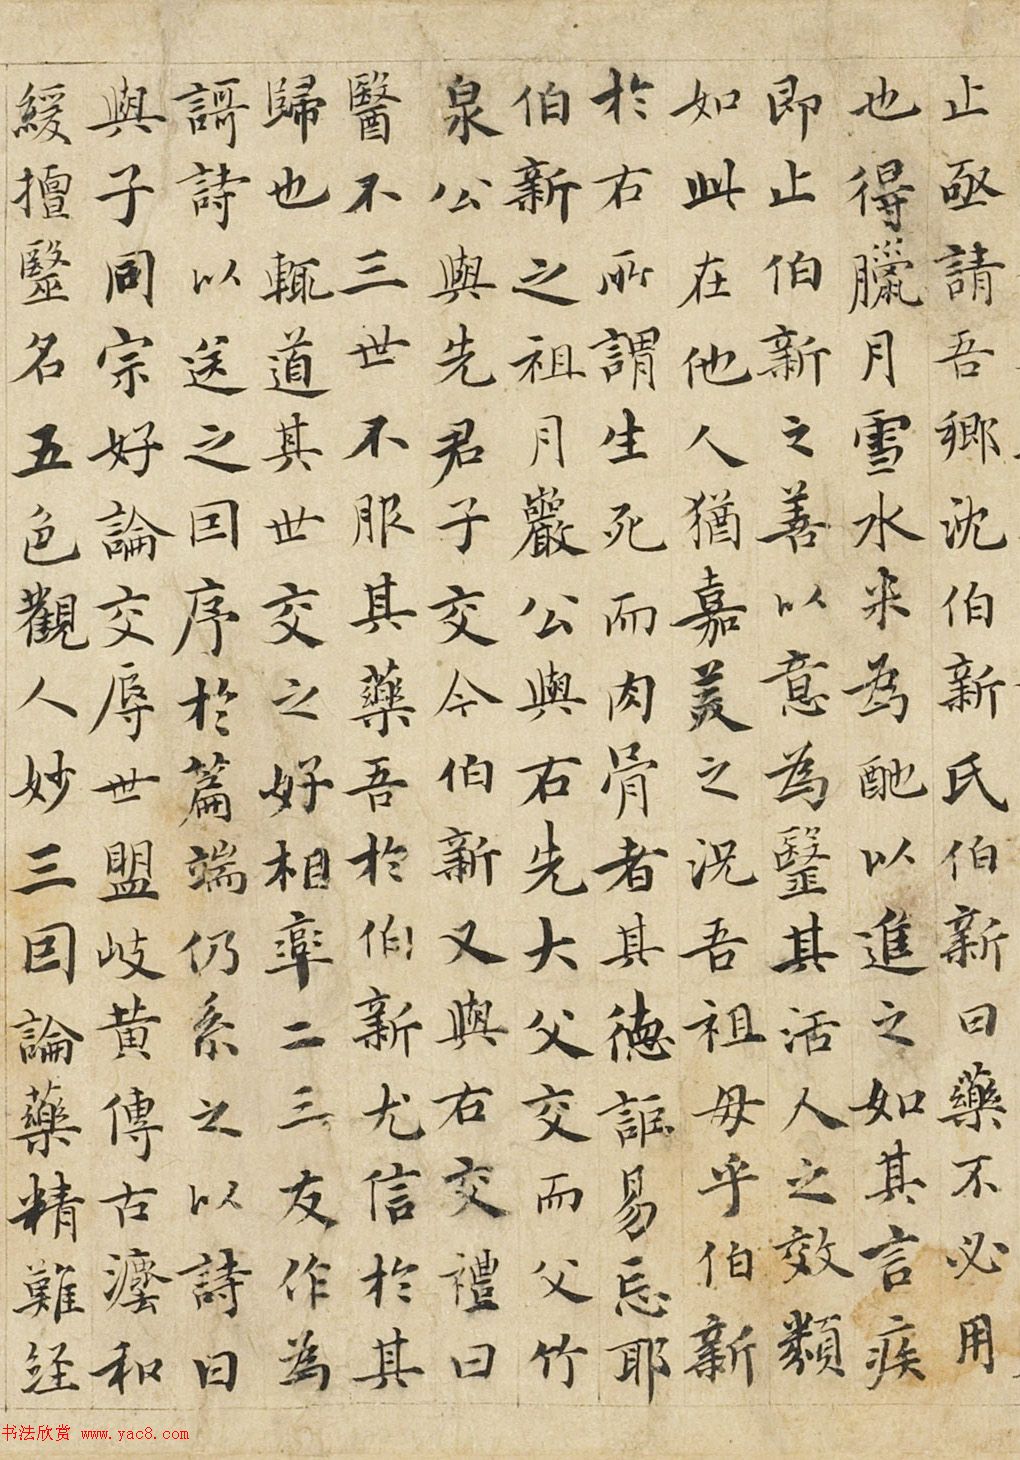 止亟請吾鄉沈伯新氏伯新曰藥不必用
也得臘月雪水米為酏以進之如其言疾
即止伯新之善以意為毉其活人之效類
如此在他人猶嘉羙之況吾祖毋乎伯新
於右所謂生死而肉骨者其德詎易忘耶
伯新之祖月巖公與右先大父交而父竹
泉公與先君子交今伯新又與右交禮曰
醫不三世不服其藥吾於伯新尤信於其
歸也輒道其世交之好相率二三友作為
謌詩以送之囙序於篇端仍系之以詩曰
與子同宗好論交辱世盟岐黃傳古灋和
緩擅毉名五色觀人妙三囙論藥精難経
书法欣赏 www.yac8.com